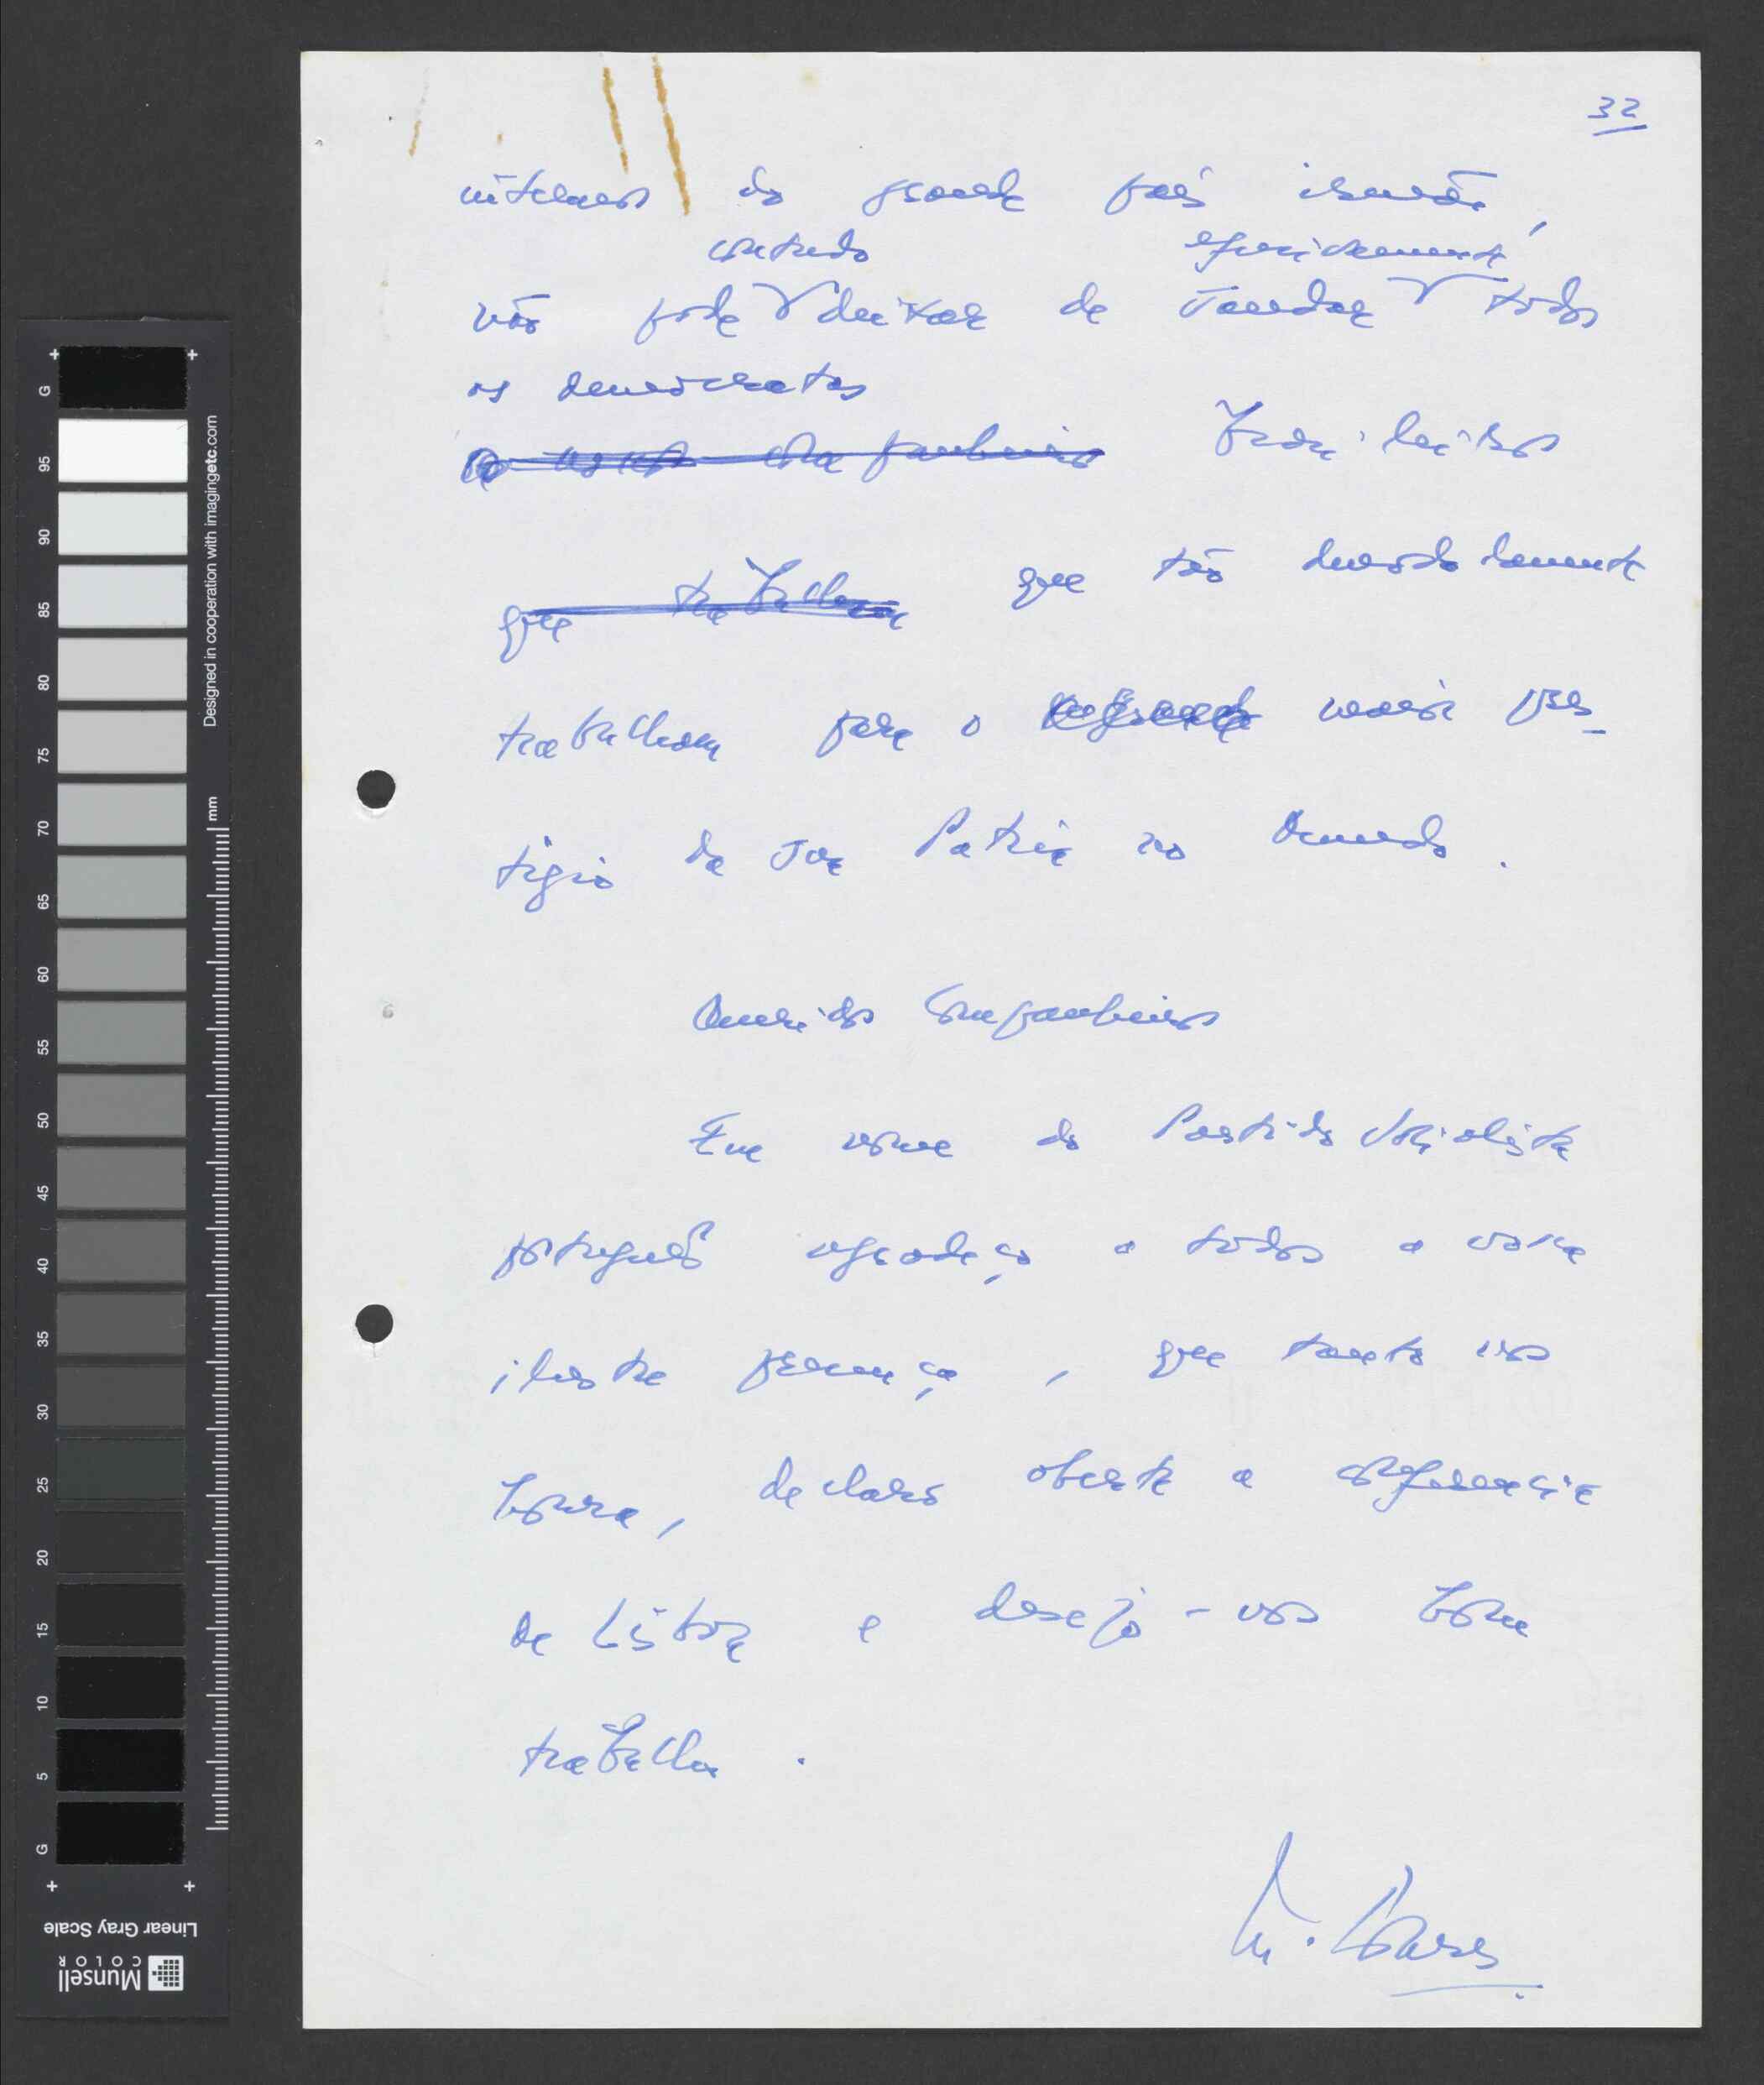 32
internos do grande país irmão,
contudo efusivamente
não pode deixar de saudar todos
os democratas
brasileiros
que trabalham que tão denodadamente
trabalham para o maior pres-
tígio da sua Pátria no Mundo.
Queridos Companheiros
Em nome do Partido Socialista
português agradeço a todos a vossa
ilustre presença, que tanto nos
honra, declaro aberta a conferência
de Lisboa e desejo-vos bom
trabalho.
M. Soares
G 95 90 85 80 75 70 65 60 55 50 45 40 35 30 25 20 15 10 5 G
Designed in cooperation with imagingetc.com
mm
Linear Gray Scale
Munsell
COLOR